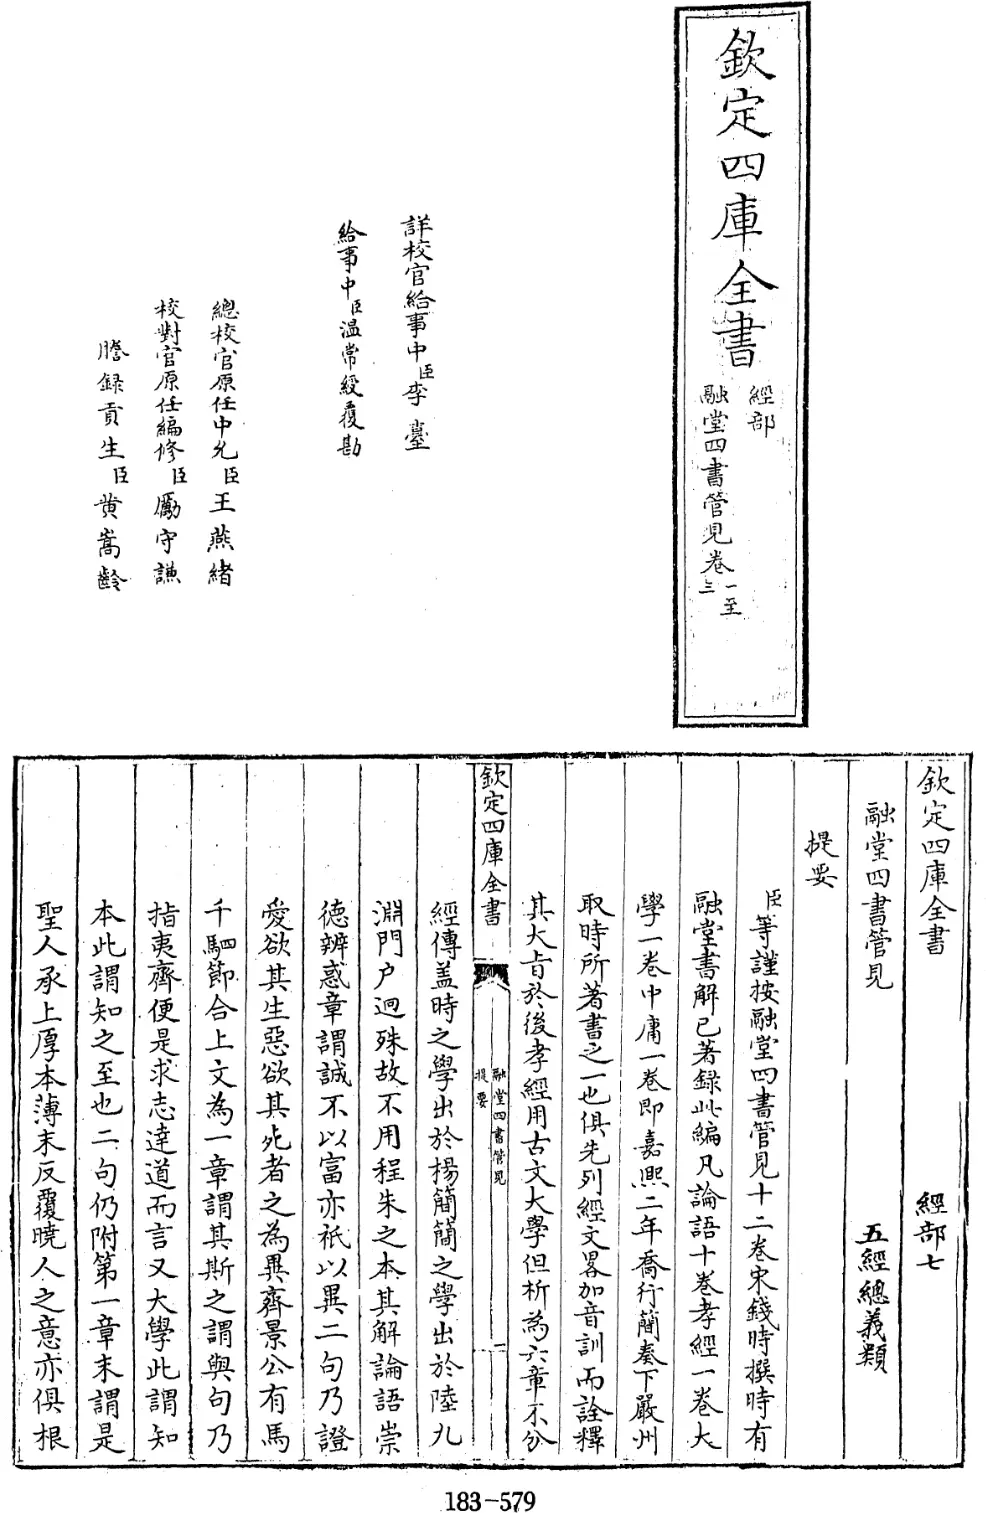 欽定四庫全書
經部
融堂四書管見卷一至三
詳校官給事中臣李臺
給事中臣溫常綬覆勘
總校官原任中允臣王燕緒
校對官原任編修臣勵守謙
謄錄貢生臣黄嵩齡
欽定四庫全書 經部七
融堂四書管見 五經總義類
提要
臣等謹按融堂四書管見十二卷宋錢時撰時有
融堂書解已著錄此編凡論語十卷孝經一卷大
學一卷中庸一卷即嘉熙二年喬行簡奏下嚴州
取時所著書之一也俱先列經文畧加音訓而詮釋
其大㫖於後孝經用古文大學但析為六章不分
欽定四庫全書
融堂四書管見
提要
一
經傳盖時之學出於楊簡簡之學出於陸九
淵門戶迥殊故不用程朱之本其解論語崇
德辨惑章謂誠不以富亦祇以異二句乃證
愛欲其生惡欲其死者之為異齊景公有馬
千駟節合上文為一章謂其斯之謂與句乃
指夷齊便是求志達道而言又大學此謂知
本此謂知之至也二句仍附第一章末謂是
聖人承上厚本薄末反覆曉人之意亦俱根
183-579